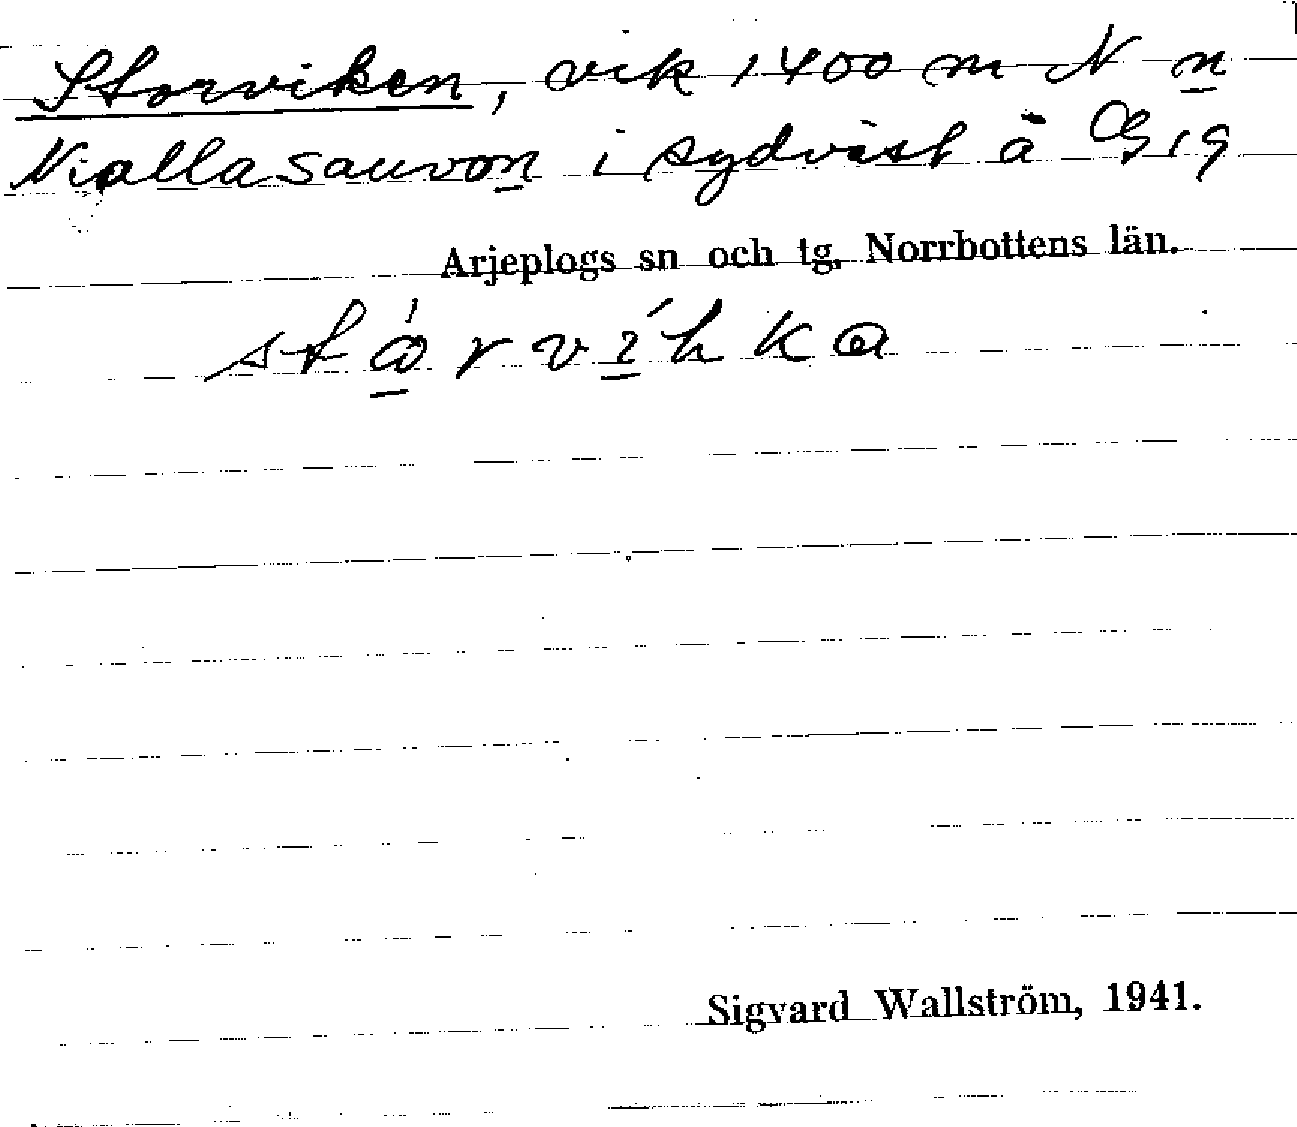 Storviken, vik 1400 m N n
Niallasauvon i sydväst å G19
Arjeplogs sn och tg, Norrbottens län.
Sigvard Wallström, 1941.